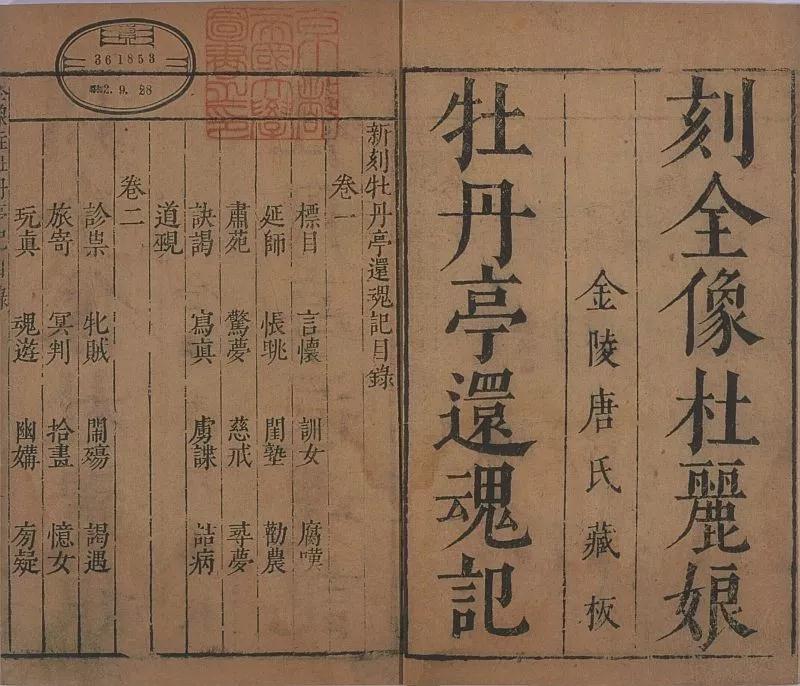 刻全像杜麗娘
金陵唐氏藏板
牡丹亭還魂記
361853
2.9.28
新刻牡丹亭還魂記目錄
卷一
標目 言懷 訓女 腐嘆
延師 悵眺 閨塾 勸農
肅苑 驚夢 慈戒 尋夢
訣謁 寫真 虜諜 詰病
道覡
卷二
診祟 牝賊 鬧殤 謁遇
旅寄 冥判 拾畫 憶女
玩真 魂遊 幽媾 旁疑